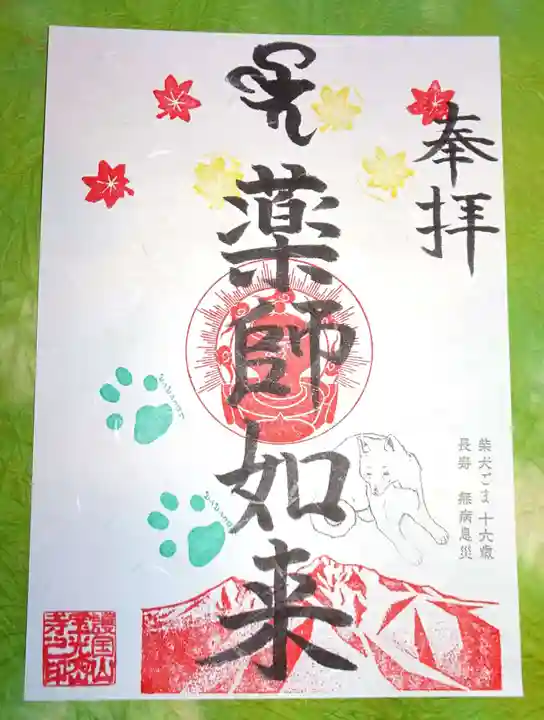 奉拝
薬師如来
柴犬ごま 十六歳
長寿 無病息災
護国山